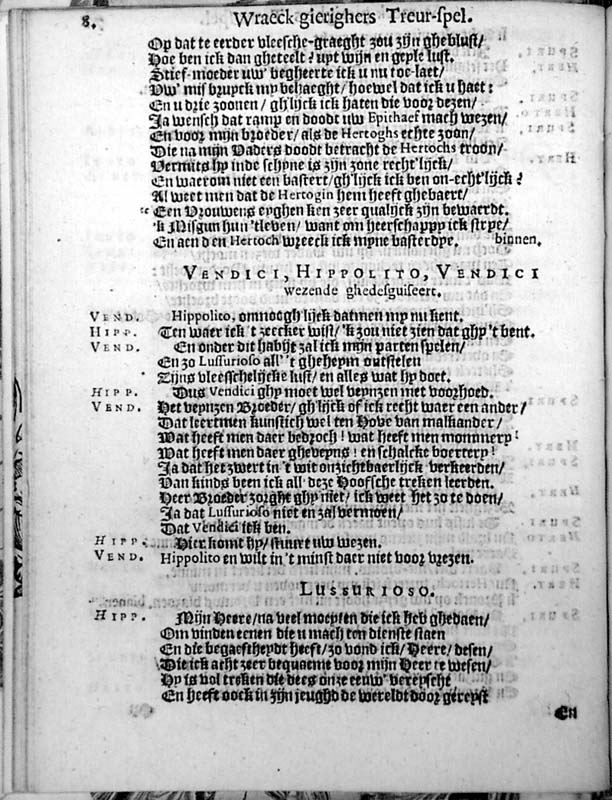 8. Wraeck-gierighers Treur-spel.
Op dat te eerder vleesche-graeght zou zijn gheblust/
Hoe ben ick dan gheteelt? uyt wijn en geyle lust.
Stief-moeder uw' begheerte ick u nu toe-laet/
Uw' mis bruyck my behaeght/ hoewel dat ick u haet:
En u drie zoonen/ gh'lijck ick haten die voor dezen/
Ja wensch dat ramp en doodt uw Epithaef mach wezen/
En voor mijn broeder/ als de Hertoghs echte zoon/
Die na mijn Vaders doodt betracht de Hertochs troon/
Vermits hy inde schijne is zijn zone recht'lijck/
En waerom niet een bastert/ gh'lijck ick ben on-echt'lijck?
Al weet men dat de Hertogin hem heeft ghebaert/
" Een Vrouwens eyghen ken zeer qualijck zijn bewaerdt.
'k Misgun hun 'tleven/ want om heerschappy ick strye/
En aen den Hertoch wreeck ick myne basterdye. binnen.
VENDICI, HIPPOLITO, VENDICI
wezende ghedesguiseert.
VEND. Hippolito, onmoogh'lijck datmen my nu kent.
HIPP. Ten waer ick 't zeecker wist/ 'k zou niet zien dat ghy 't bent.
VEND. En onder dit habijt zal ick mijn parten spelen/
En zo Lussurioso all' 't gheheym ontstelen
Zijns vleesschelijcke lust/ en alles wat hy doet.
HIPP. Dus Vendici ghy moet wel veynzen met voorhoed.
VEND. Het veynzen Broeder/ gh'lijck of ick recht waer een ander/
Dat leertmen kunstich wel ten Hove van malkander/
Wat heeft men daer bedroch! wat heeft men mommery!
Wat heeft men daer gheveyns! en schalcke boertery!
Ja dat het zwert in 't wit onzichtbaerlijck verkeerden/
Van kinds been ick all' deze Hoofsche treken leerden.
Heer Broeder zorght ghy niet/ ick weet het zo te doen/
Ja dat Lussurioso niet en zal vermoen/
Dat Vendici ick ben.
HIPP. Hier komt hy/ stuurt uw wezen.
VEND. Hippolito en wilt in 't minst daer niet voor vrezen.
LUSSURIOSO.
HIPP. Mijn Heere/ na veel moeyten die ick heb ghedaen/
Om vinden eenen die u mach ten dienste staen
En die begaeftheydt heeft/ zo vond ick/ Heere/ desen/
Die ick acht zeer bequaeme voor mijn Heer te wesen/
Hy is vol treken die dees onze eeuw' vereyscht
En heeft oock in zijn jeughd de wereldt door gereyst
En